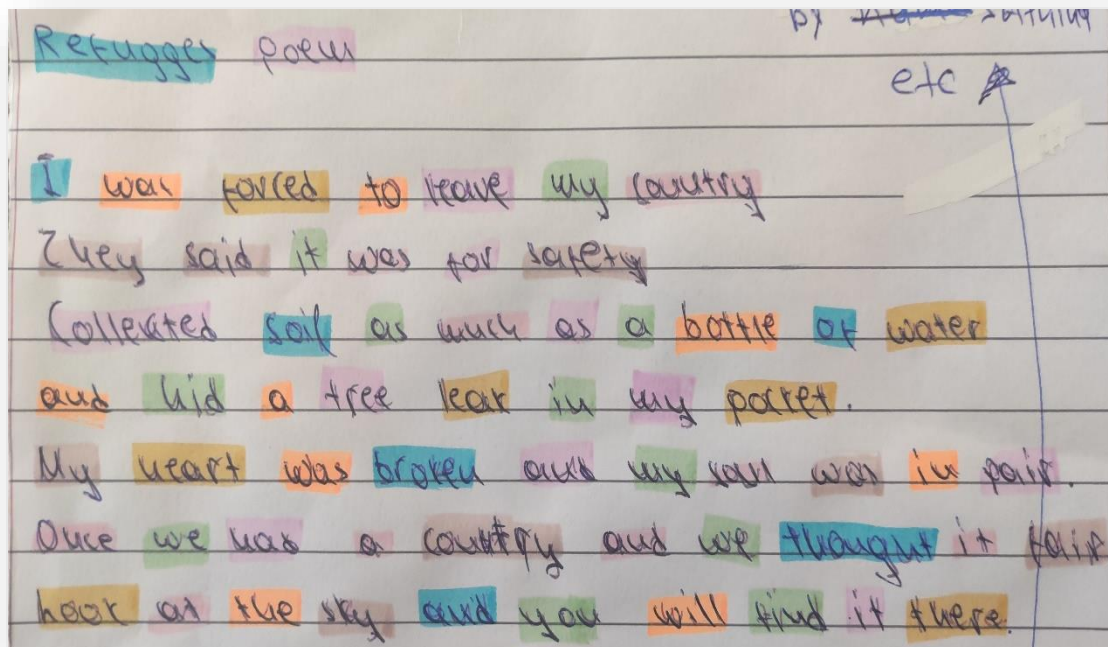 by saithing
Refugges poem
etc
I was forced to leave my country
They said it was for safety
Collected soil as much as a bottle of water
and hid a tree leaf in my pocket.
My heart was broken and my soul was in pain.
Once we had a country and we thought it fair
look at the sky and you will find it there.